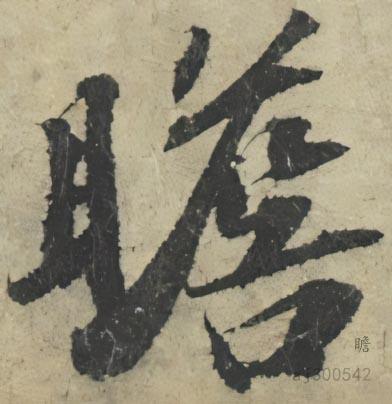 瞻
瞻
aj300542